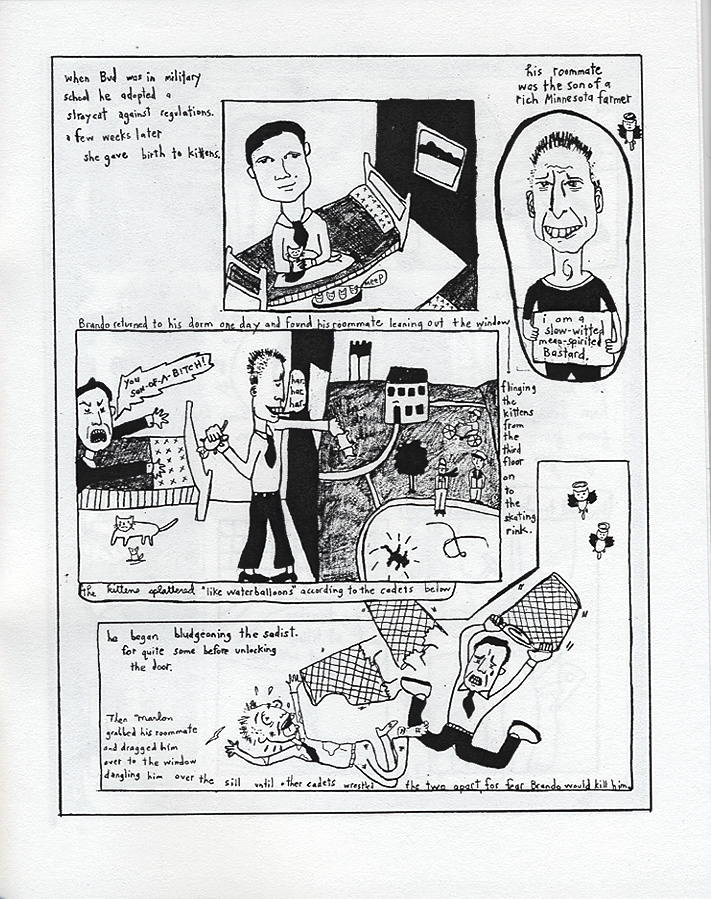 when Bud was in military
school he adopted a
straycat against regulations.
a few weeks later
she gave birth to kittens.
his roommate
was the son of a
rich Minnesota farmer
meep
i am a
slow-witted
mean-spirited
Bastard.
Brando returned to his dorm one day and found his roommate leaning out the window
flinging
the
kittens
from
the
third
floor
on
to
the
skating
rink.
you
SON-OF-A-BITCH!
har
har
har
the kittens splattered "like waterballoons" according to the cadets below
he began bludgeoning the sadist.
for quite some before unlocking
the door.
Then Marlon
grabbed his roommate
and dragged him
over to the window
dangling him over the sill until other cadets wrestled the two apart for fear Brando would kill him.